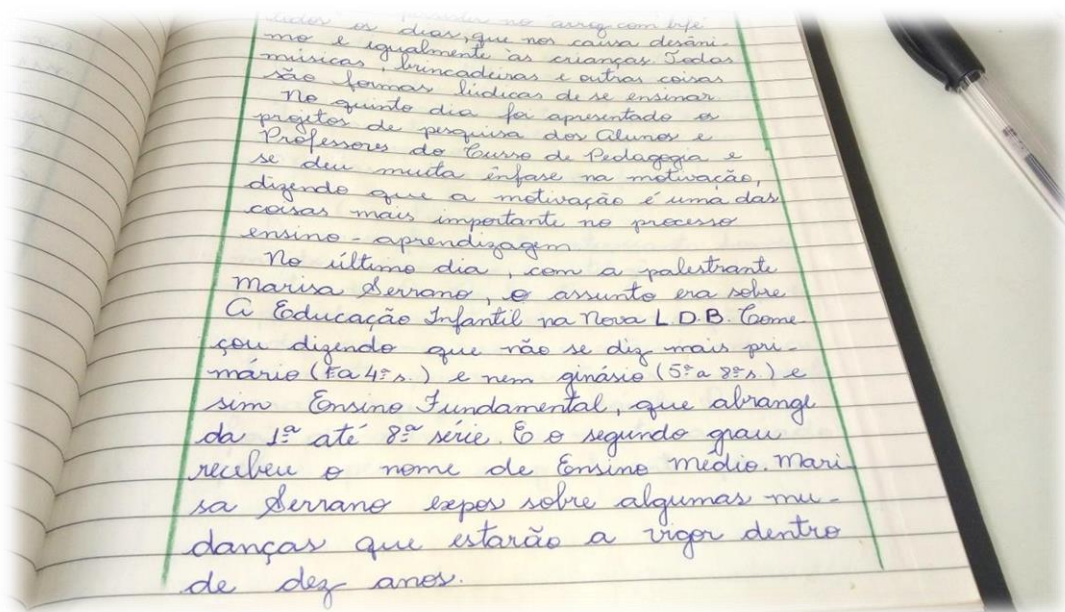 no arroz com bife
todos os dias, que nos causa desâni-
mo e igualmente às crianças. Todas
músicas, brincadeiras e outras coisas
são formas lúdicas de se ensinar.
No quinto dia foi apresentado os
projetos de pesquisa dos alunos e
Professores do Curso de Pedagogia e
se deu muita ênfase na motivação,
dizendo que a motivação é uma das
coisas mais importante no processo
ensino-aprendizagem
No último dia, com a palestrante
Marisa Serrano, o assunto era sobre
A Educação Infantil na Nova L.D.B. Come-
çou dizendo que não se diz mais pri-
mário (1ª a 4ª s.) e nem ginásio (5ª a 8ª s.) e
sim Ensino Fundamental, que abrange
da 1ª até 8ª série. E o segundo grau
recebeu o nome de Ensino médio. Mari
sa Serrano expos sobre algumas mu-
danças que estarão a vigor dentro
de dez anos.